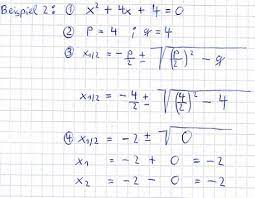 Beispiel 2: ① x² + 4x + 4 = 0
② P = 4 ; q = 4
③ x₁/₂ = -p/2 ± √((p/2)² - q)
x₁/₂ = -4/2 ± √((4/2)² - 4)
④ x₁/₂ = -2 ± √0
x₁ = -2 + 0 = -2
x₂ = -2 - 0 = -2